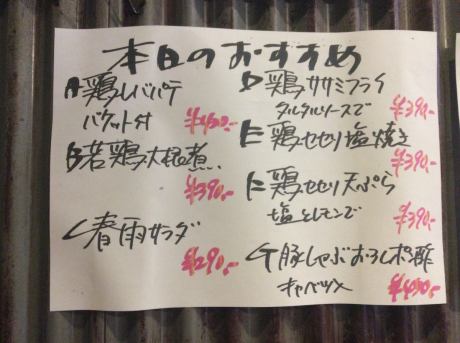 本日のおすすめ
A 鶏レバパテ
バケット付
¥450-
B 若鶏大根煮
¥390-
C 春雨サラダ
¥290-
D 鶏ササミフライ
タルタルソースで
¥390-
E 鶏セセリ塩焼き
¥390-
F 鶏セセリ天ぷら
塩とレモンで
¥390-
G 豚しゃぶおろしポン酢
キャベツ
¥490-